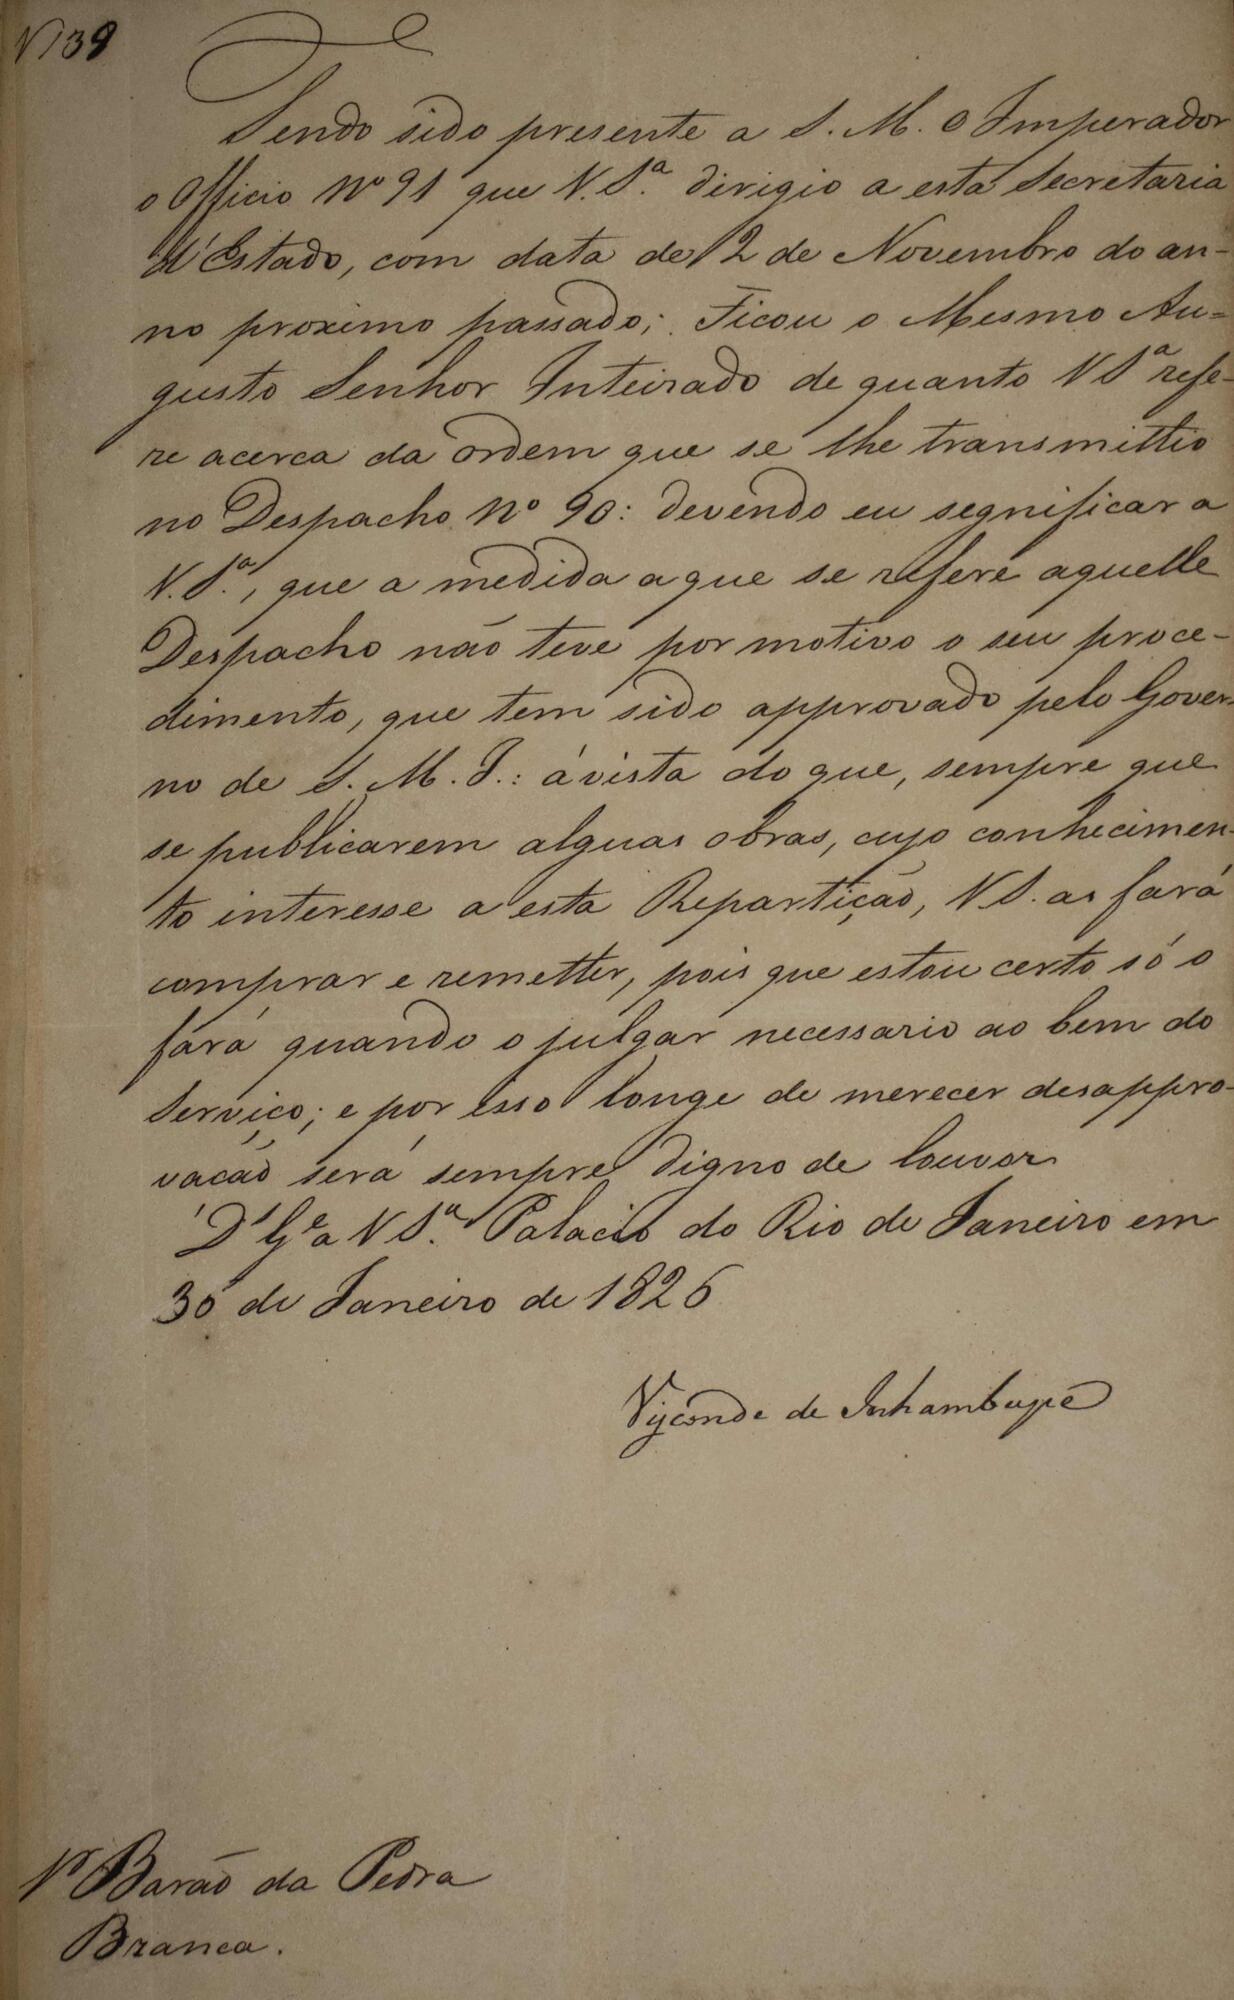 N 39
Tendo sido presente a S. M. O Imperador
o Officio Nº 91 que V. Sª. dirigio a esta Secretaria
d'Estado, com data de 12 de Novembro do an-
no proximo passado; Ficou o Mesmo Au-
gusto Senhor Inteirado de quanto V Sª refe-
re acerca da ordem que se lhe transmittio
no Despacho Nº 90: devendo eu segnificar a
V. Sª., que a medida a que se refere aquelle
Despacho não teve por motivo o seu proce-
dimento, que tem sido approvado pelo Gover-
no de S. M. I.: á vista do que, sempre que
se publicarem alguas obras, cujo conhecimen-
to interesse a esta Repartição, V S. as fará
comprar e remetter, pois que estou certo só o
fará quando o julgar necessario ao bem do
Serviço; e por isso longe de merecer desappro-
vação será sempre digno de louvor
D' Gᵉ a V Sª. Palacio do Rio de Janeiro em
30 de Janeiro de 1826
Visconde de Inhambupe
Sʳ Barão da Pedra
Branca.